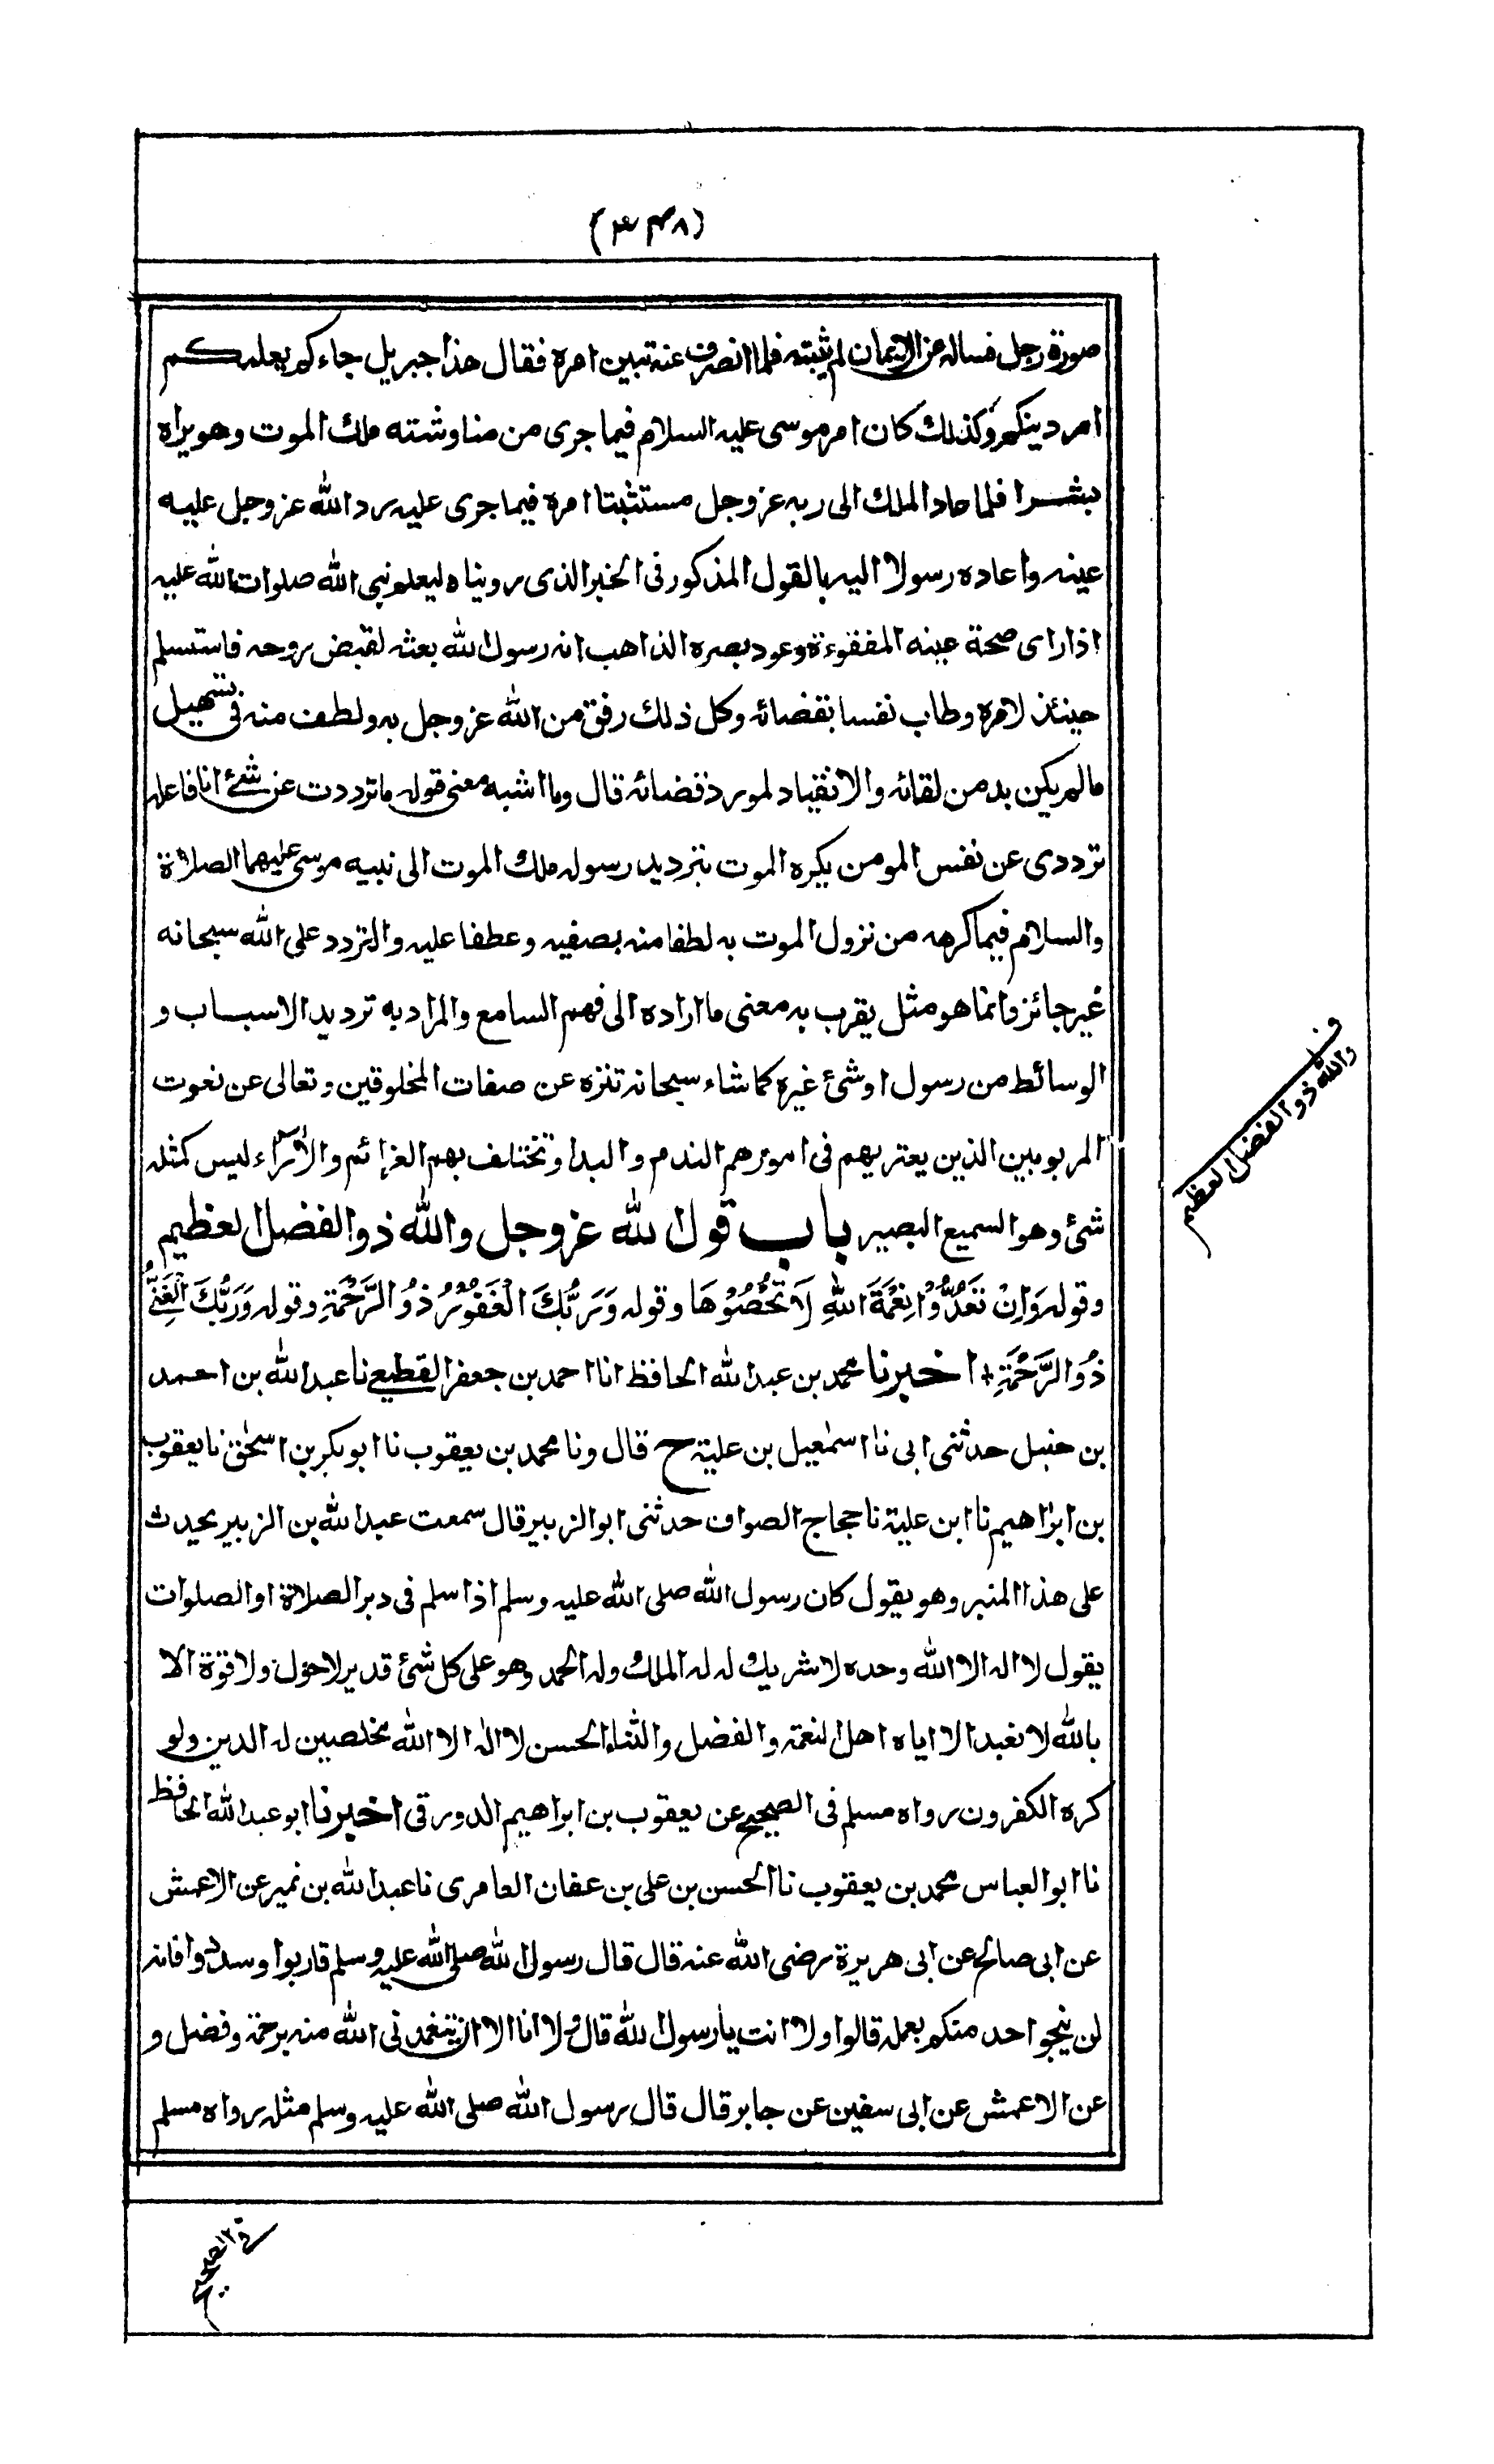 (۳۴۸)
صورة رجل فساله عن الايمان لم يثبته فلما انصرف عنه تبين امره فقال هذا جبريل جاءكم يعلمكم
امر دينكم وكذلك كان امر موسى عليه السلام فيما جرى من مناوشته ملك الموت وهو يراه
بشرا فلما عاد الملك الى ربه عزوجل مستثبتا امره فيما جرى عليه رد الله عزوجل عليه
عينه واعاده رسولا اليه بالقول المذكور فى الخبر الذى رويناه ليعلم نبى الله صلوات الله عليه
اذا راى صحة عينه المفقوءة وعود بصره الذاهب انه رسول الله بعثه لقبض روحه فاستسلم
حينئذ لامره وطاب نفسا بقضائه وكل ذلك رفق من الله عزوجل به ولطف منه فى تسهيل
مالم يكن بد من لقائه والانقياد لمورد قضائه قال وما اشبه معنى قوله ماترددت عن شئ انا فاعله
ترددى عن نفس المومن يكره الموت بترديد رسوله ملك الموت الى نبيه موسى عليهما الصلاة
والسلام فيما كرهه من نزول الموت به لطفا منه بصفيه وعطفا عليه والتردد على الله سبحانه
غير جائز وانما هو مثل يقرب به معنى ما اراده الى فهم السامع والمراد به ترديد الاسباب و
الوسائط من رسول اوشئ غيره كما شاء سبحانه تنزه عن صفات المخلوقين وتعالى عن نعوت
المربوبين الذين يعتريهم فى امورهم الندم والبدا وتختلف بهم العزائم والآراء ليس كمثله
شئ وهو السميع البصير باب قول الله عزوجل والله ذوالفضل العظيم
وقوله وَاِنْ تَعُدُّوْا نِعْمَةَ اللّٰهِ لَا تُحْصُوْهَا وقوله وَرَبُّكَ الْغَفُوْرُ ذُو الرَّحْمَةِ وقوله وَرَبُّكَ الْغَنِيُّ
ذُو الرَّحْمَةِ اخبرنا محمد بن عبدالله الحافظ انا احمد بن جعفر القطيعى نا عبدالله بن احمد
بن حنبل حدثنى ابى نا اسمٰعيل بن علية ح قال ونا محمد بن يعقوب نا ابوبكر بن اسحٰق نا يعقوب
بن ابراهيم نا ابن علية نا حجاج الصواف حدثنى ابوالزبير قال سمعت عبدالله بن الزبير يحدث
على هذا المنبر وهو يقول كان رسول الله صلى الله عليه وسلم اذا سلم فى دبر الصلاة او الصلوات
يقول لا اله الا الله وحده لا شريك له له الملك وله الحمد وهو على كل شئ قدير لا حول ولا قوة الا
بالله لا نعبد الا اياه اهل النعمة والفضل والثناء الحسن لا الٰه الا الله مخلصين له الدين ولو
كره الكفرون رواه مسلم فى الصحيح عن يعقوب بن ابراهيم الدورقى اخبرنا ابو عبدالله الحافظ
نا ابوالعباس محمد بن يعقوب نا الحسن بن على بن عفان العامرى نا عبدالله بن نمير عن الاعمش
عن ابى صالح عن ابى هريرة رضى الله عنه قال قال رسول الله صلى الله عليه وسلم قاربوا وسددوا فانه
لن ينجو احد منكم بعمله قالوا ولا انت يارسول الله قال ولا انا الا ان يتغمدنى الله منه برحمة وفضل و
عن الاعمش عن ابى سفين عن جابر قال قال رسول الله صلى الله عليه وسلم مثله رواه مسلم
والله ذوالفضل العظيم
فى الصحيح